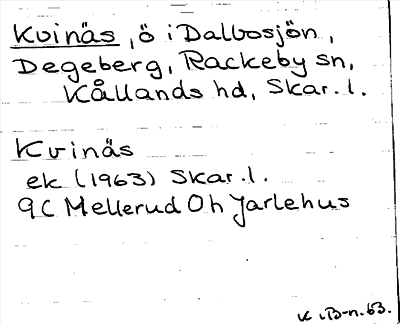 Kvinäs, ö i Dalbosjön,
Degeberg, Rackeby sn,
Kållands hd, Skar. l.
Kvinäs
ek (1963) Skar. l.
9C Mellerud Oh Jarlehus
K. B-n. 63.